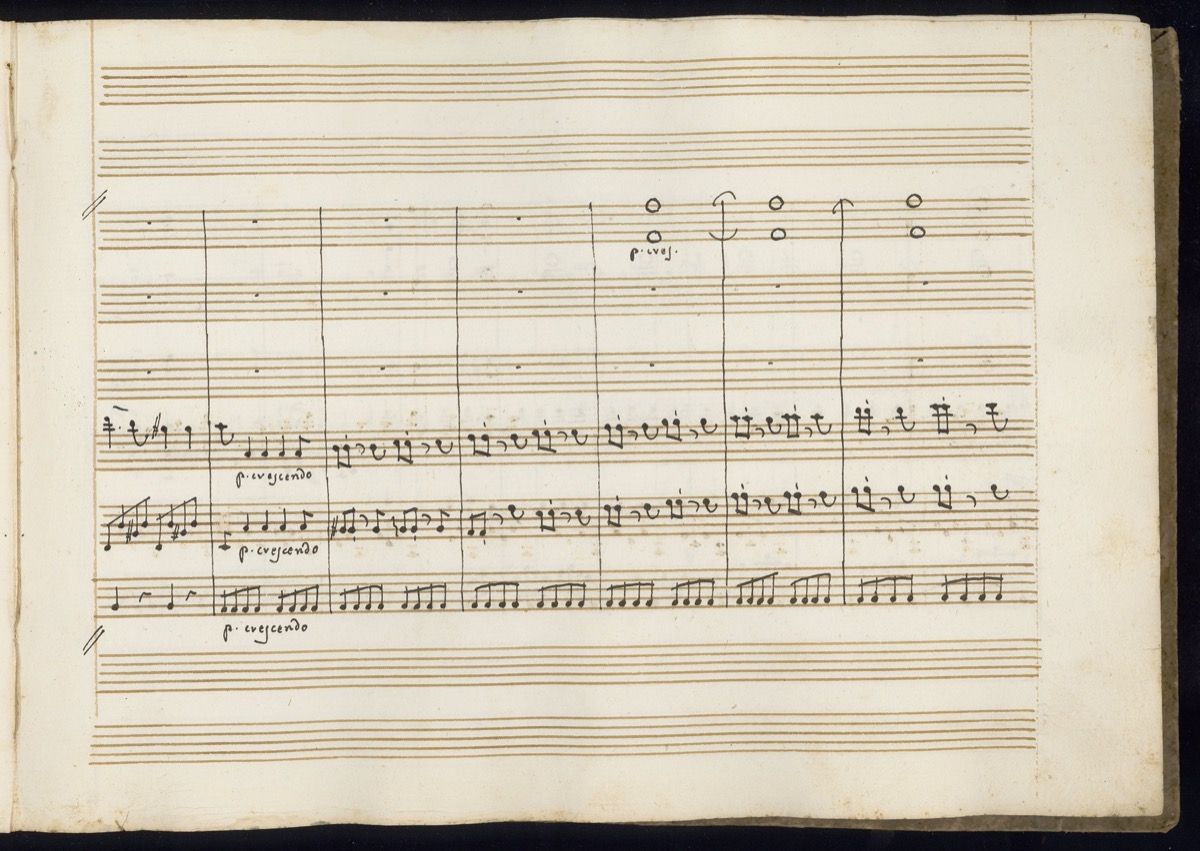 p. cres.
p. crescendo
p. crescendo
p. crescendo